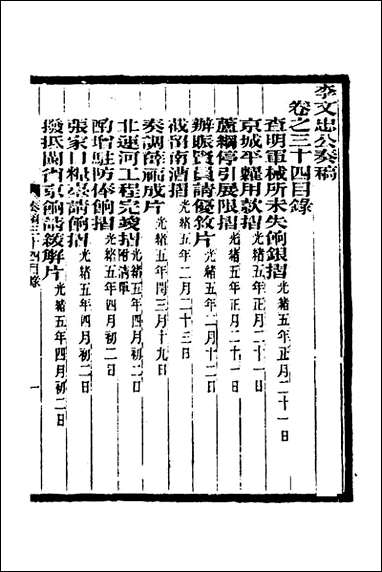 李文忠公奏稿
卷之三十四目錄
查明軍械所未失餉銀摺光緒五年正月二十一日
京城平糶用款摺光緒五年正月二十一日
蘆綱停引展限摺光緒五年正月二十一日
辦賑實員請優敘片光緒五年二月十二日
截留南漕摺光緒五年二月二十三日
奏調薛福成片光緒五年閏三月十九日
北運河工程完竣摺附清單光緒五年四月初二日
酌增駐防俸餉摺光緒五年四月初二日
張家口糧臺請餉摺光緒五年四月初二日
撥抵閩省京餉請緩解片光緒五年四月初二日
奏稿三十四目錄
一